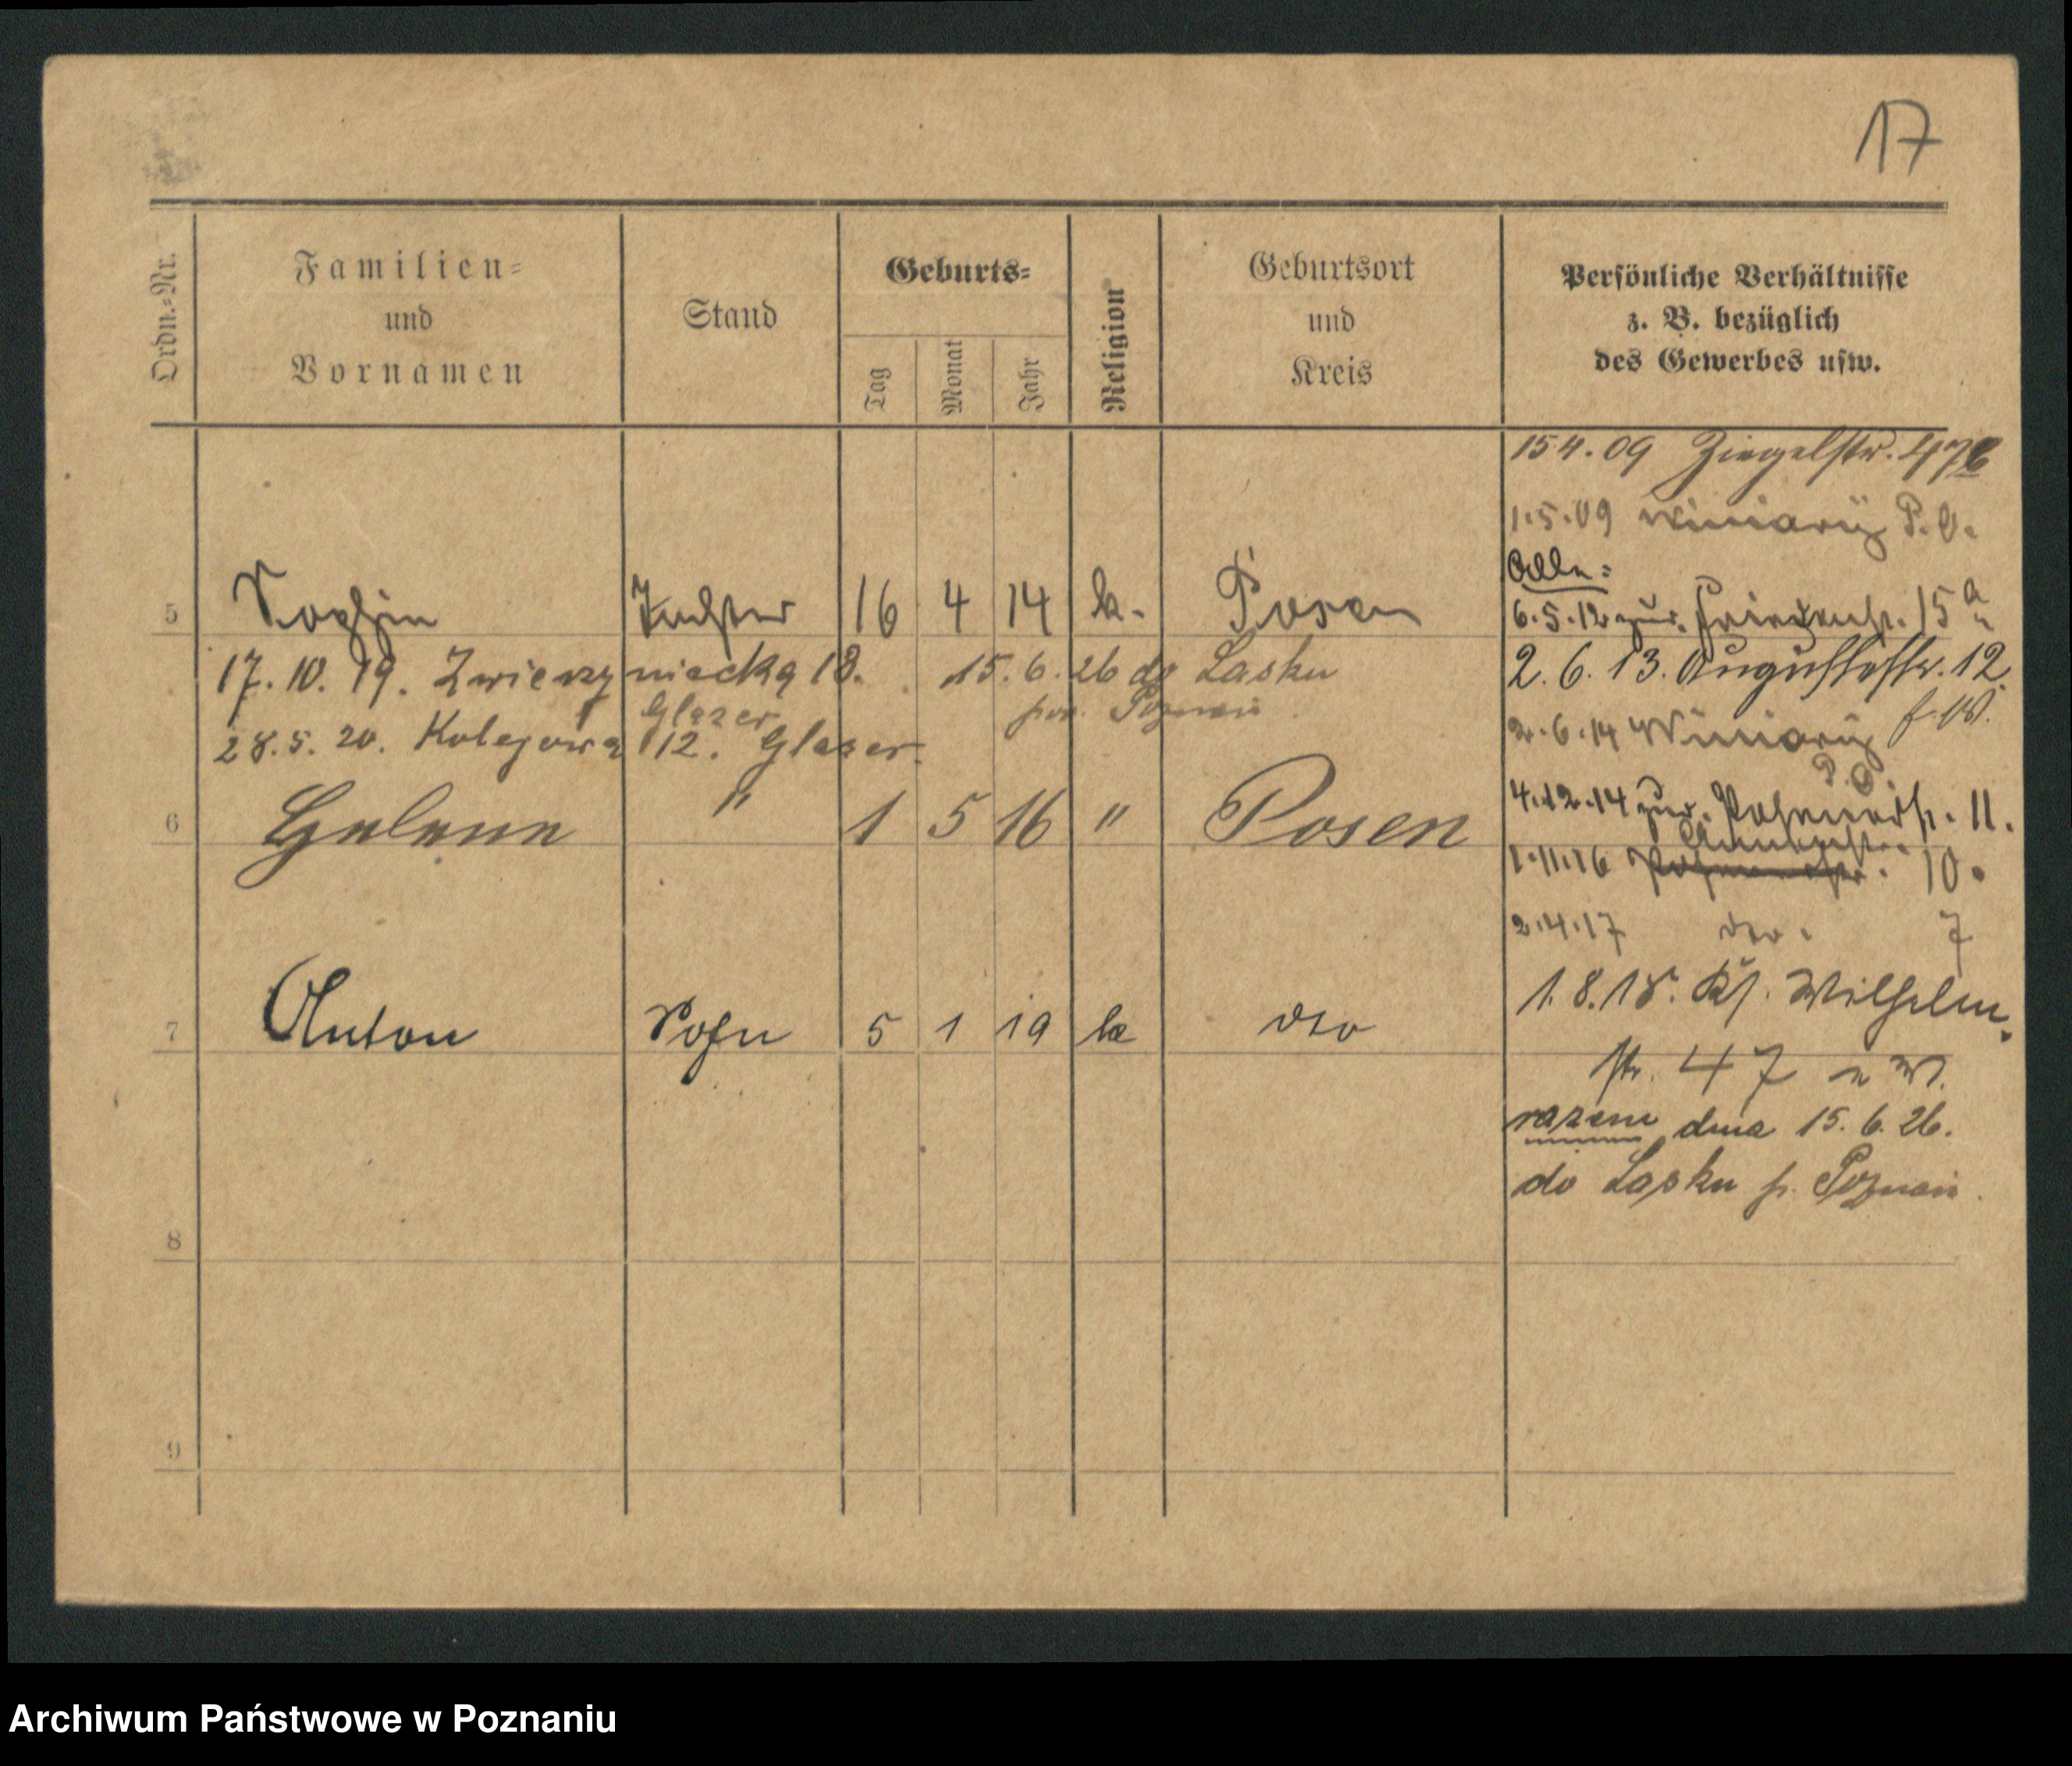 17
Ordn.-Nr.
Familien-
und
Vornamen
Stand
Geburts-
Tag
Monat
Jahr
Religion
Geburtsort
und
Kreis
Persönliche Verhältnisse
z. B. bezüglich
des Gewerbes usw.
15.4.09 Ziegelstr. 47
1.5.09 Winiary P. O.
Alle:
5 Sophie Tochter 16 4 14 k. Posen
6.5.12 zur. Friedenstr. 15a
17.10.19. Zwierzyniecka 18. 15.6.26 do Lasku
2.6.13. Augustastr. 12.
Glazer pow. Poznań
28.5.20. Kolejowa 12. Glaser.
2.6.14 Winiary
P. O.
6 Helene " 1 5 16 " Posen
4.12.14 zur. Posenerstr. 11.
1.11.16 Posenerstr. 10.
2.4.17 dto. 7
7 Anton Sohn 5 1 19 k dto
1.8.18. Ks. Wilhelm-
str. 47
razem dnia 15.6.26.
do Lasku p. Poznań.
8
9
Archiwum Państwowe w Poznaniu